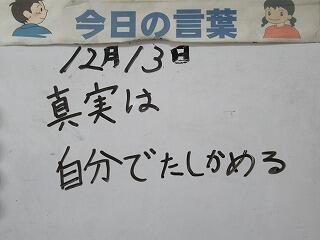 今日の言葉
12月13日
真実は
自分でたしかめる